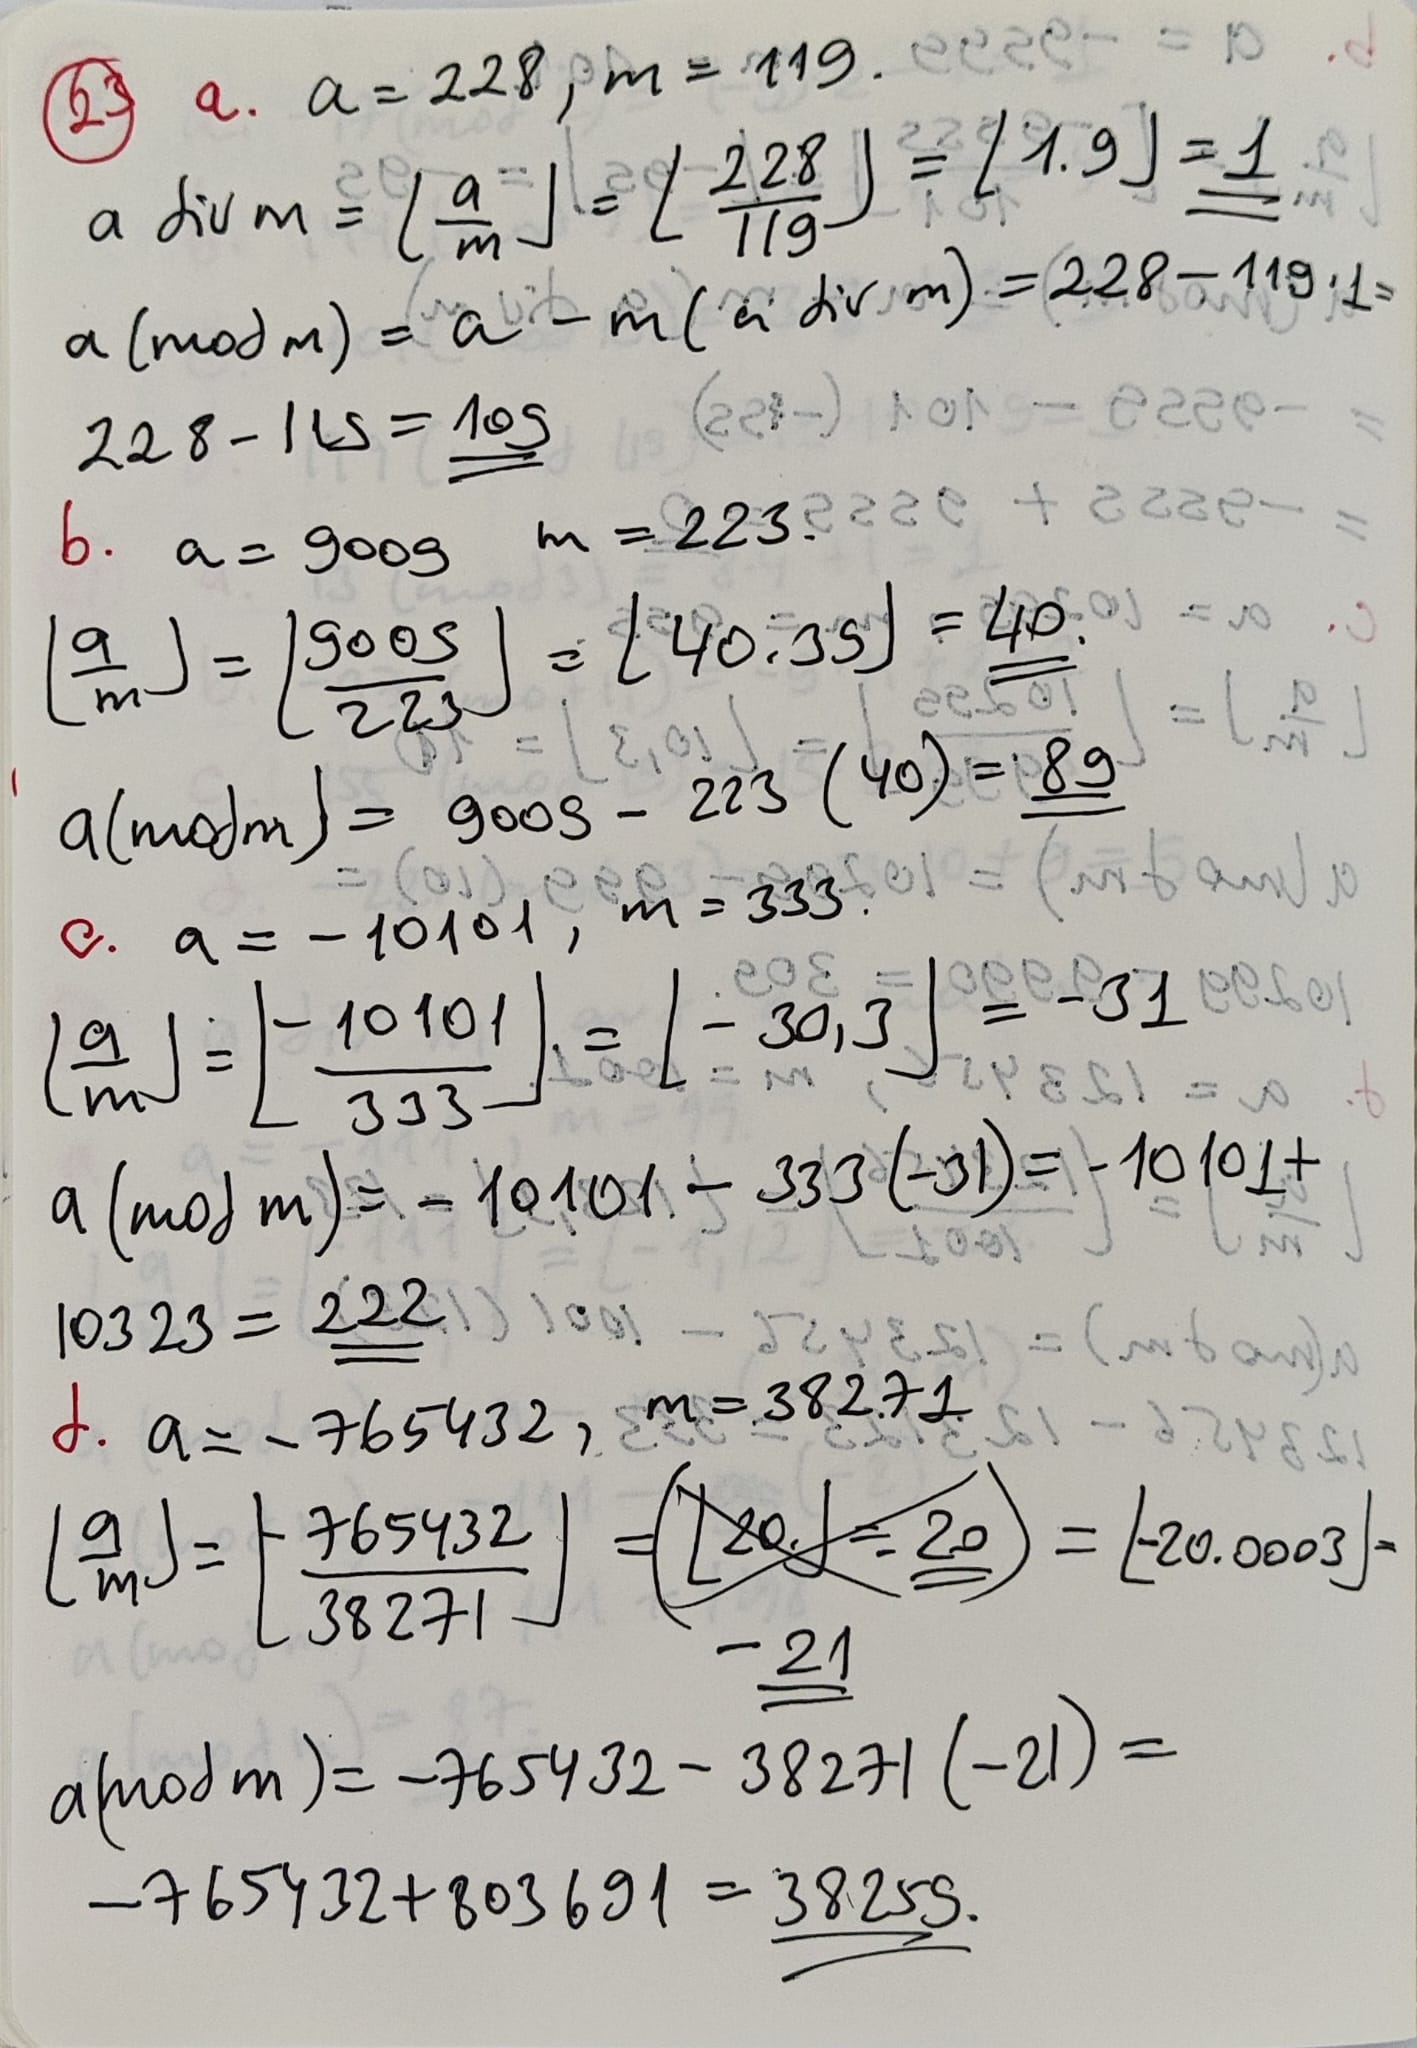 63 a. a = 228, m = 119.
a div m = ⌊a/m⌋ = ⌊228/119⌋ = ⌊1.9⌋ = 1
a (mod m) = a - m (a div m) = 228 - 119·1 =
228 - 119 = 109
b. a = 9009 m = 223.
⌊a/m⌋ = ⌊9009/223⌋ = ⌊40.39⌋ = 40.
a (mod m) = 9009 - 223 (40) = 89
c. a = -10101, m = 333.
⌊a/m⌋ = ⌊-10101/333⌋ = ⌊-30,3⌋ = -31
a (mod m) = -10101 - 333 (-31) = -10101 +
10323 = 222
d. a = -765432, m = 38271
⌊a/m⌋ = ⌊-765432/38271⌋ = (⌊20.⌋ = 20) = ⌊-20.0003⌋ =
-21
a (mod m) = -765432 - 38271 (-21) =
-765432 + 803691 = 38259.